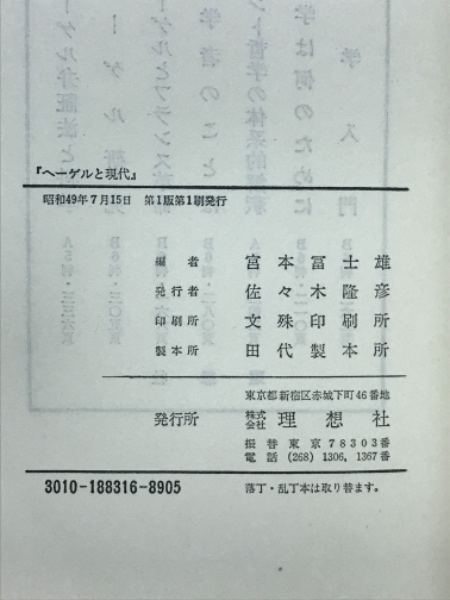 『ヘーゲルと現代』
昭和49年7月15日 第1版第1刷発行
編者 宮本冨士雄
発行者 佐々木隆彦
印刷所 文殊印刷所
製本所 田代製本所
東京都新宿区赤城下町46番地
発行所 株式会社 理想社
振替東京78303番
電話 (268) 1306, 1367番
3010-188316-8905 落丁・乱丁本は取り替ます。